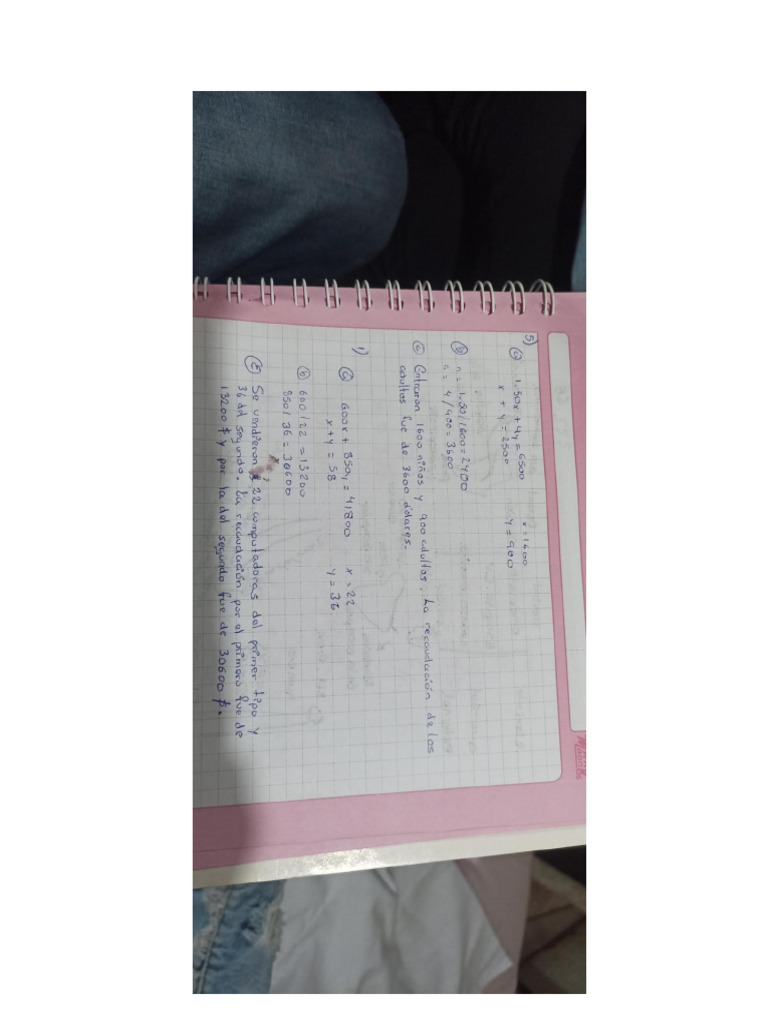 5)
a) 1,50x + 4y = 6500    x = 1600
x + y = 2500    y = 900
b) n = 1,50/1600 = 2400
a = 4/900 = 3600
c) Entraron 1600 niños y 900 adultos. La recaudación de los
adultos fue de 3600 dólares.
1)
a) 600x + 850y = 41800    x = 22
x + y = 58    y = 36
b) 600/22 = 13200
850/36 = 30600
c) Se vendieron 22 computadoras del primer tipo y
36 del segundo. La recaudación por el primero fue de
13200 $ y por la del segundo fue de 30600 $.